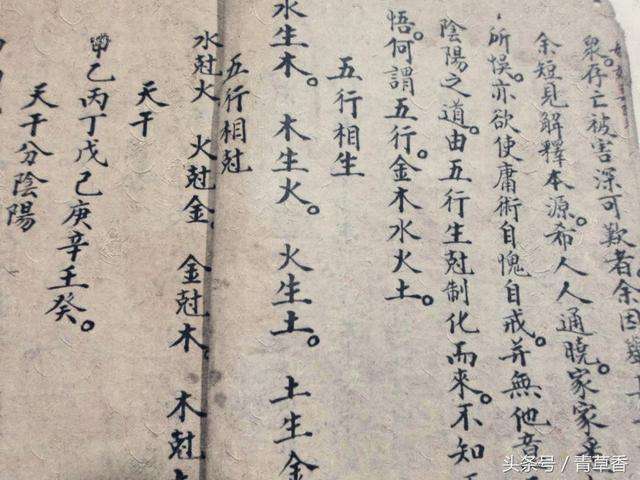 眾。存亡被害深可歎者余因
余短見解釋本源。希人人通曉。家家
所悞。亦欲使庸術自愧自戒。并無他意
陰陽之道。由五行生尅制化而來。不知
悟。何謂五行。金木水火土。
五行相生
水生木。 木生火。 火生土。 土生金
五行相尅
水尅火 火尅金 金尅木 木尅
天干
甲乙丙丁戊己庚辛壬癸。
天干分陰陽
头条号／青草香